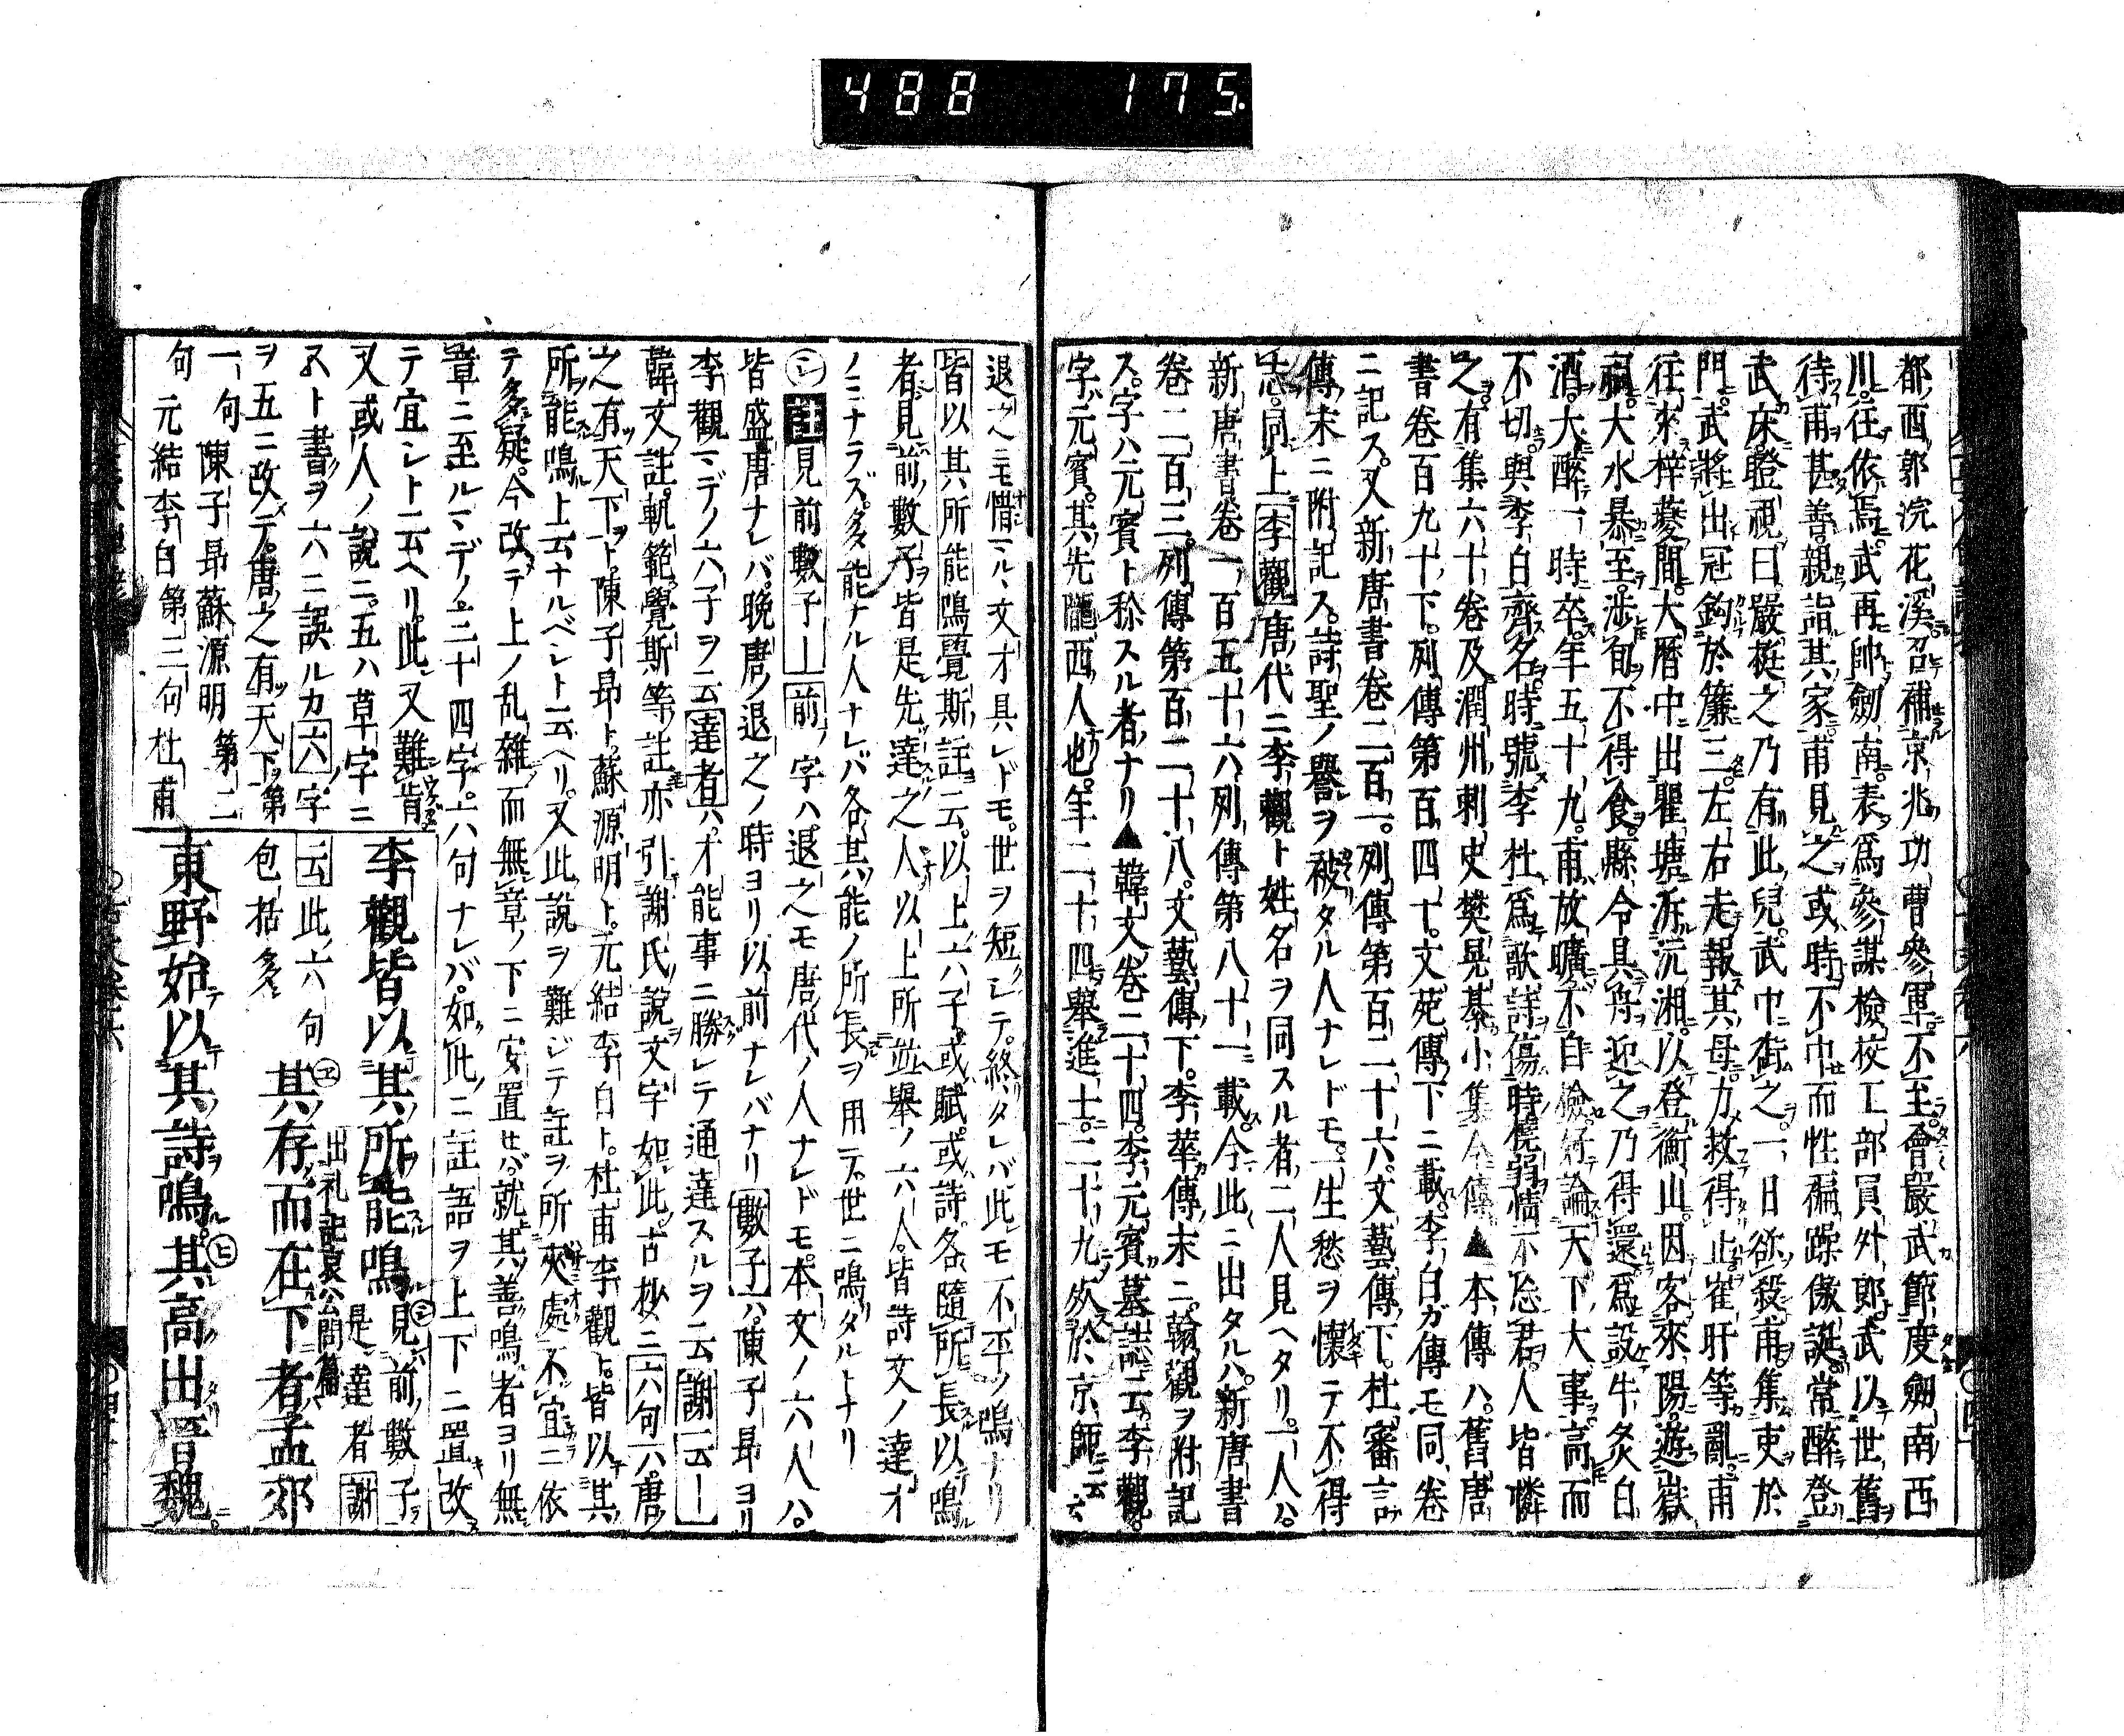 488 175.
都西郭浣花溪召補京兆功曹參軍不至會嚴武節度劒南西
川往依焉武再帥劒南表爲參謀檢挍工部員外郎武以世舊
待甫甚善親詣其家甫見之或時不巾而性褊躁傲誕常醉登
武床瞪視曰嚴挺之乃有此兒武中銜之一日欲殺甫集吏於
門武將出冠鉤於簾三左右走報其母力救得止崔旰等亂甫
往來梓夔間大曆中出瞿塘泝沅湘以登衡山因客耒陽遊嶽
祠大水暴至涉旬不得食縣令具舟迎之乃得還爲設牛炙白
酒大醉一時卒年五十九甫放曠不自檢好論天下大事高而
不切與李白齊名時號李杜爲歌詩傷時橈弱情不忘君人皆憐
之有集六十卷及潤州刺史樊晃纂小集今傳▲本傳ハ舊唐
書卷百九十下列傳第百四十文苑傳下ニ載李白ガ傳モ同卷
ニ記ス又新唐書卷二百一列傳第百二十六文藝傳下杜審言
傳末ニ附記ス詩聖ノ譽ヲ被タル人ナレドモ一生愁ヲ懷テ不得
志同上李觀唐代ニ李觀ト姓名ヲ同スル者二人見ヘタリ一人ハ
新唐書卷一百五十六列傳第八十一載今此ニ出タルハ新唐書
卷二百三列傳第百二十八文藝傳下李華傳末ニ翰觀ヲ附記
ス字ハ元賓ト稱スル者ナリ▲韓文卷二十四李元賓墓誌云李觀
字元賓其先隴西人也年二十四舉進士二十九死於京師云云
退之ニモ惜マル丶文才具レドモ世ヲ短シテ終タレバ此モ不平ノ鳴ナリ
皆以其所能鳴覺斯註云以上六子或賦或詩各隨所長以鳴
者見前數子皆是先達之人以上所並舉ノ六人皆詩文ノ達才
ノミナラズ多々能ナル人ナレバ各其能ノ所長ヲ用テ世ニ鳴タルトナリ
㋛註見前數子―前ノ字ハ退之モ唐代ノ人ナレドモ本文ノ六人ハ
皆盛唐ナレバ晚唐ノ退之ノ時ヨリ以前ナレバナリ數子ハ陳子昂ヨリ
李觀マデノ六子ヲ云達者ハ才能事ニ勝レテ通達スルヲ云謝云―
韓文註軌範覺斯等註亦引謝氏說文字如此古抄ニ六句六唐
之有天下ト陳子昂ト蘇源明ト元結李白ト杜甫李觀ト皆以其
所能鳴上云ナルベシト云ヘリ又此說ヲ難ジテ註ヲ所夾處不宜ニ依
テ多疑今改テ上ノ乱雜而無章ノ下ニ安置セバ就其善鳴者ヨリ無
章ニ至ルマデノ三十四字六句ナレバ如此ニ註語ヲ上下ニ置改
テ宜シト云ヘリ此又難肯
又或人ノ說ニ五ハ草字ニ
ト書ヲ六ニ誤ルカ六字
ヲ五ニ改テ唐之有天下第
一句陳子昂蘇源明第二
句元結李白第三句杜甫
李觀皆以其所能鳴㋛見前數子
是達者謝
云此六句
包括多
㋓其存而在下者孟郊
出礼記哀公問篇
東野始以其詩鳴㋪其高出晋魏